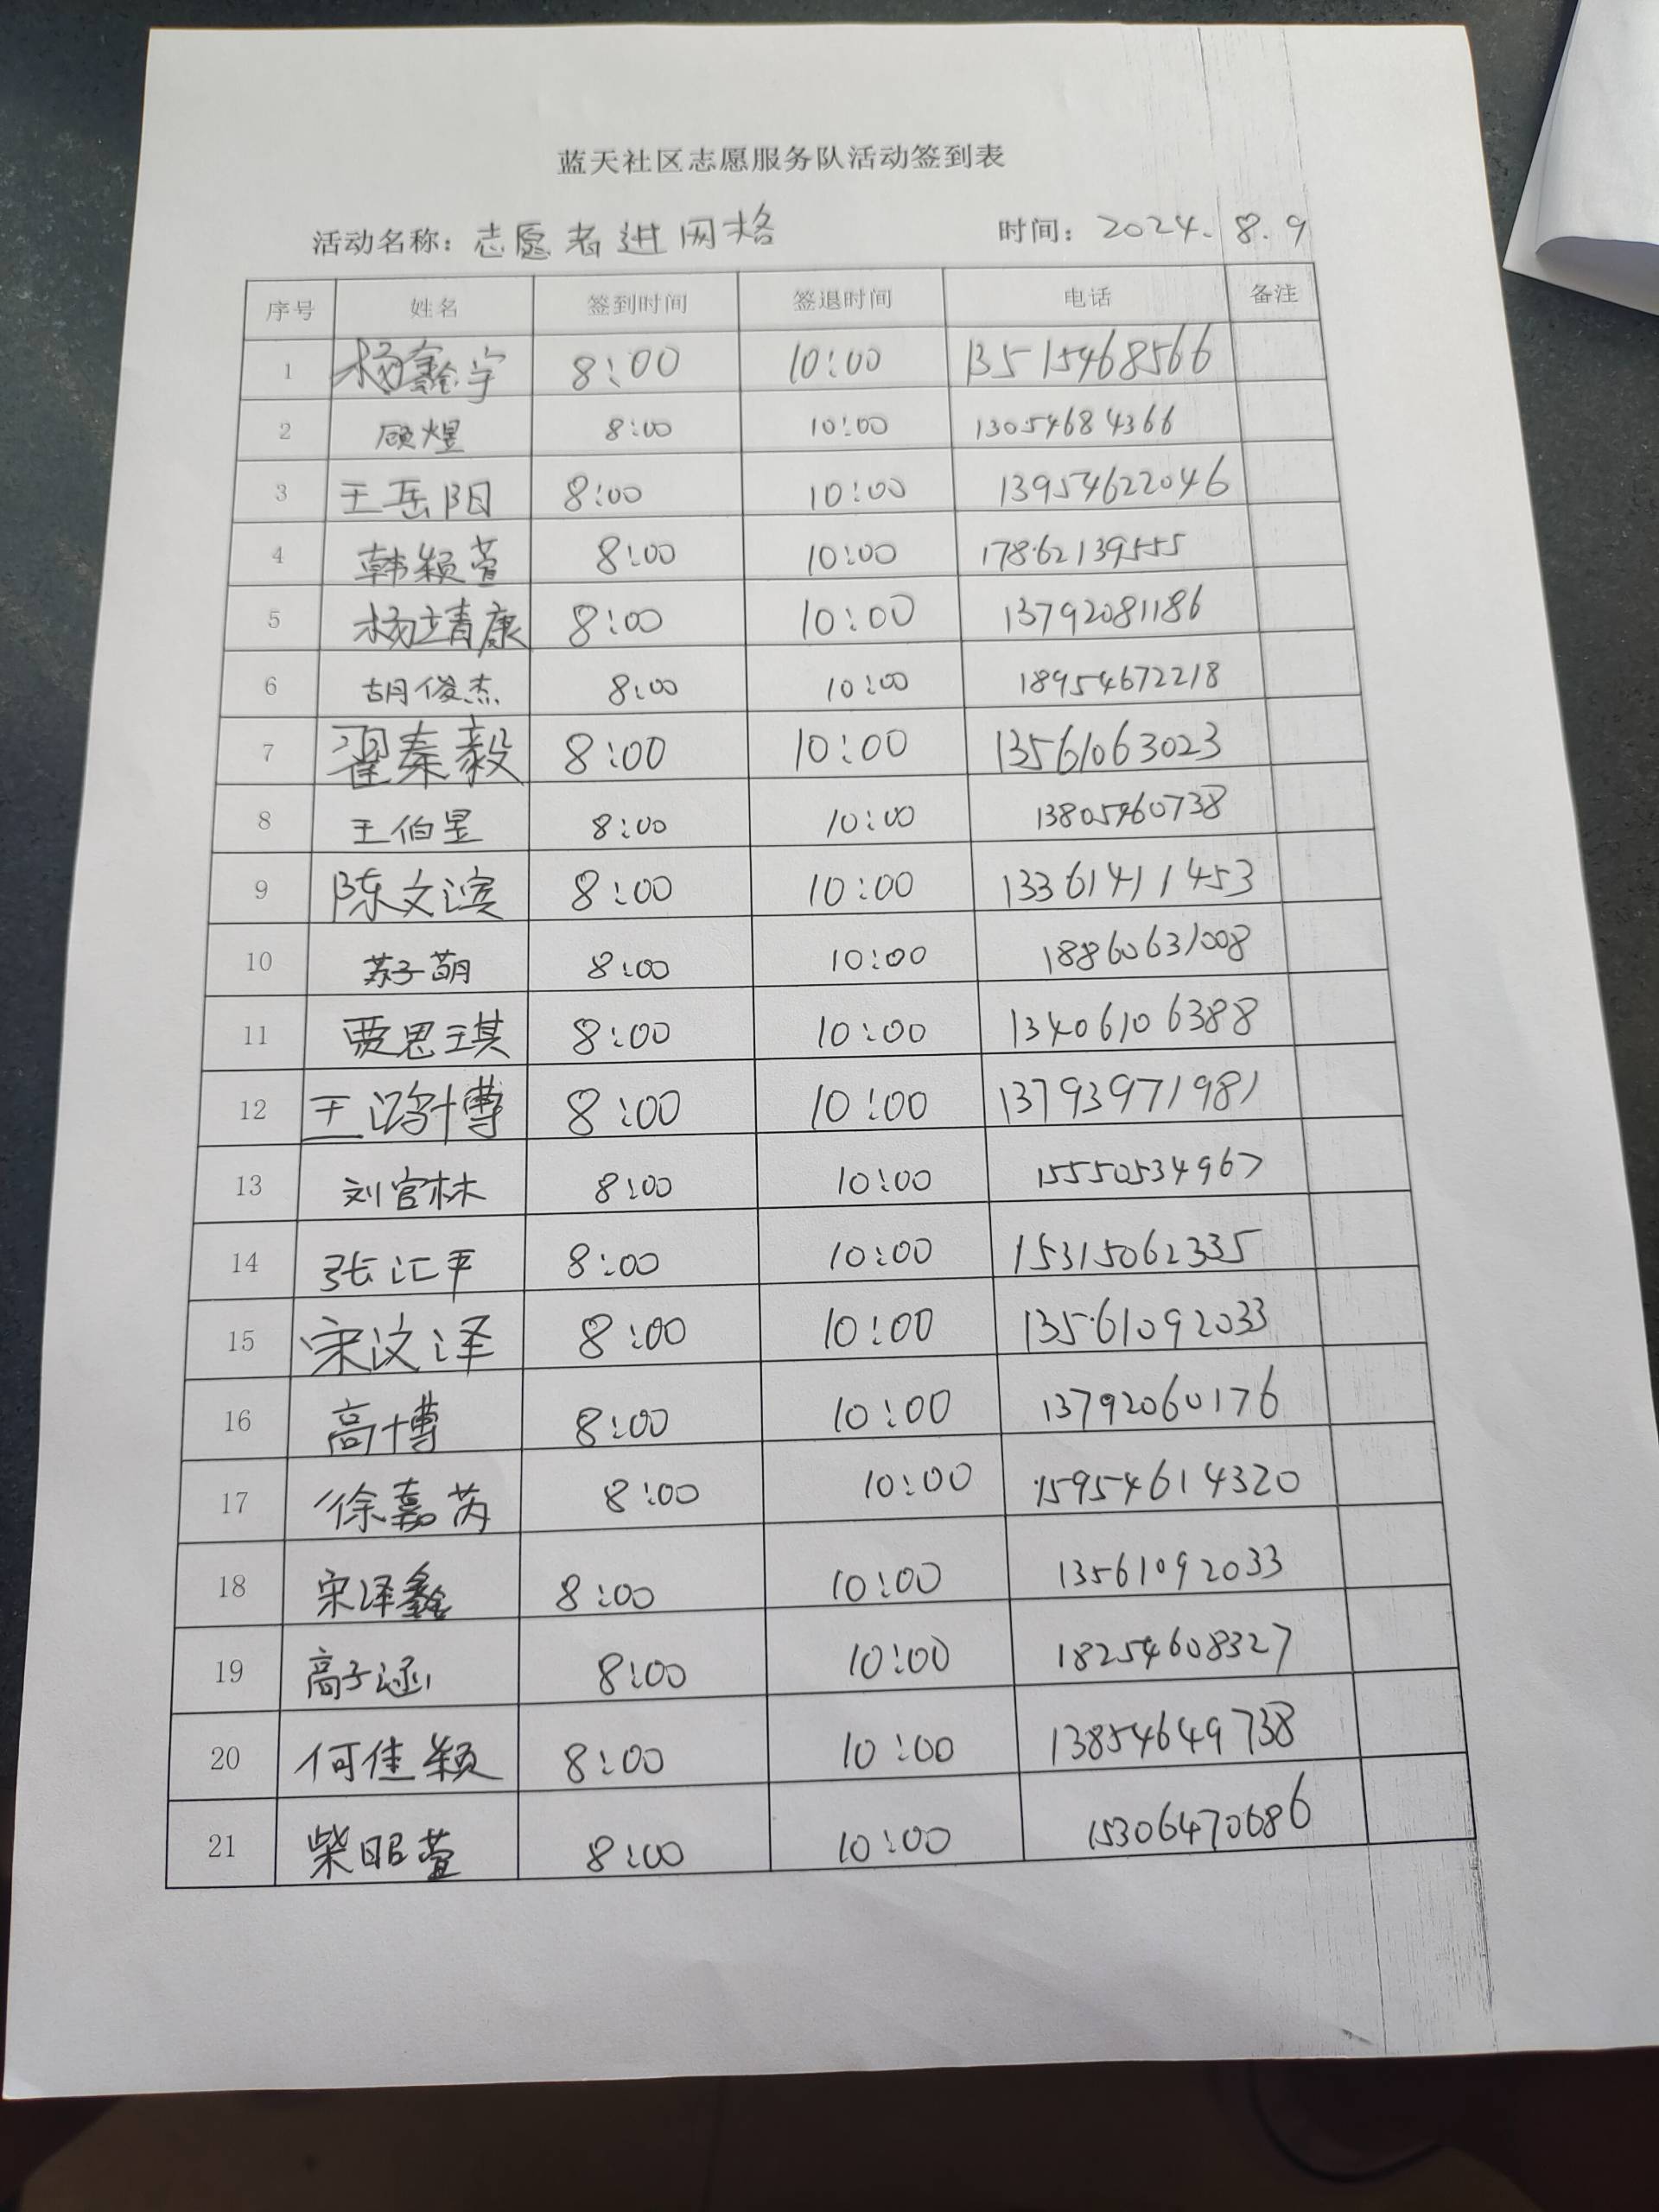 蓝天社区志愿服务队活动签到表
活动名称：志愿者进网格 时间：2024.8.9
序号 姓名 签到时间 签退时间 电话 备注
1 杨鑫宇 8:00 10:00 13515468566
2 顾煜 8:00 10:00 13054684366
3 王岳阳 8:00 10:00 13954622046
4 韩颖萱 8:00 10:00 17862139555
5 杨靖康 8:00 10:00 13792081186
6 胡俊杰 8:00 10:00 18954672218
7 翟秦毅 8:00 10:00 13561063023
8 王伯昱 8:00 10:00 13805460738
9 陈文滨 8:00 10:00 13361411453
10 苏子萌 8:00 10:00 18860631008
11 贾思琪 8:00 10:00 13406106388
12 王鸿博 8:00 10:00 13793971981
13 刘官林 8:00 10:00 15550534967
14 张汇平 8:00 10:00 15315062335
15 宋汶泽 8:00 10:00 13561092033
16 高博 8:00 10:00 13792060176
17 徐嘉芮 8:00 10:00 15954614320
18 宋泽鑫 8:00 10:00 13561092033
19 高子涵 8:00 10:00 18254608327
20 何佳颖 8:00 10:00 13854649738
21 柴昭萱 8:00 10:00 15306470686